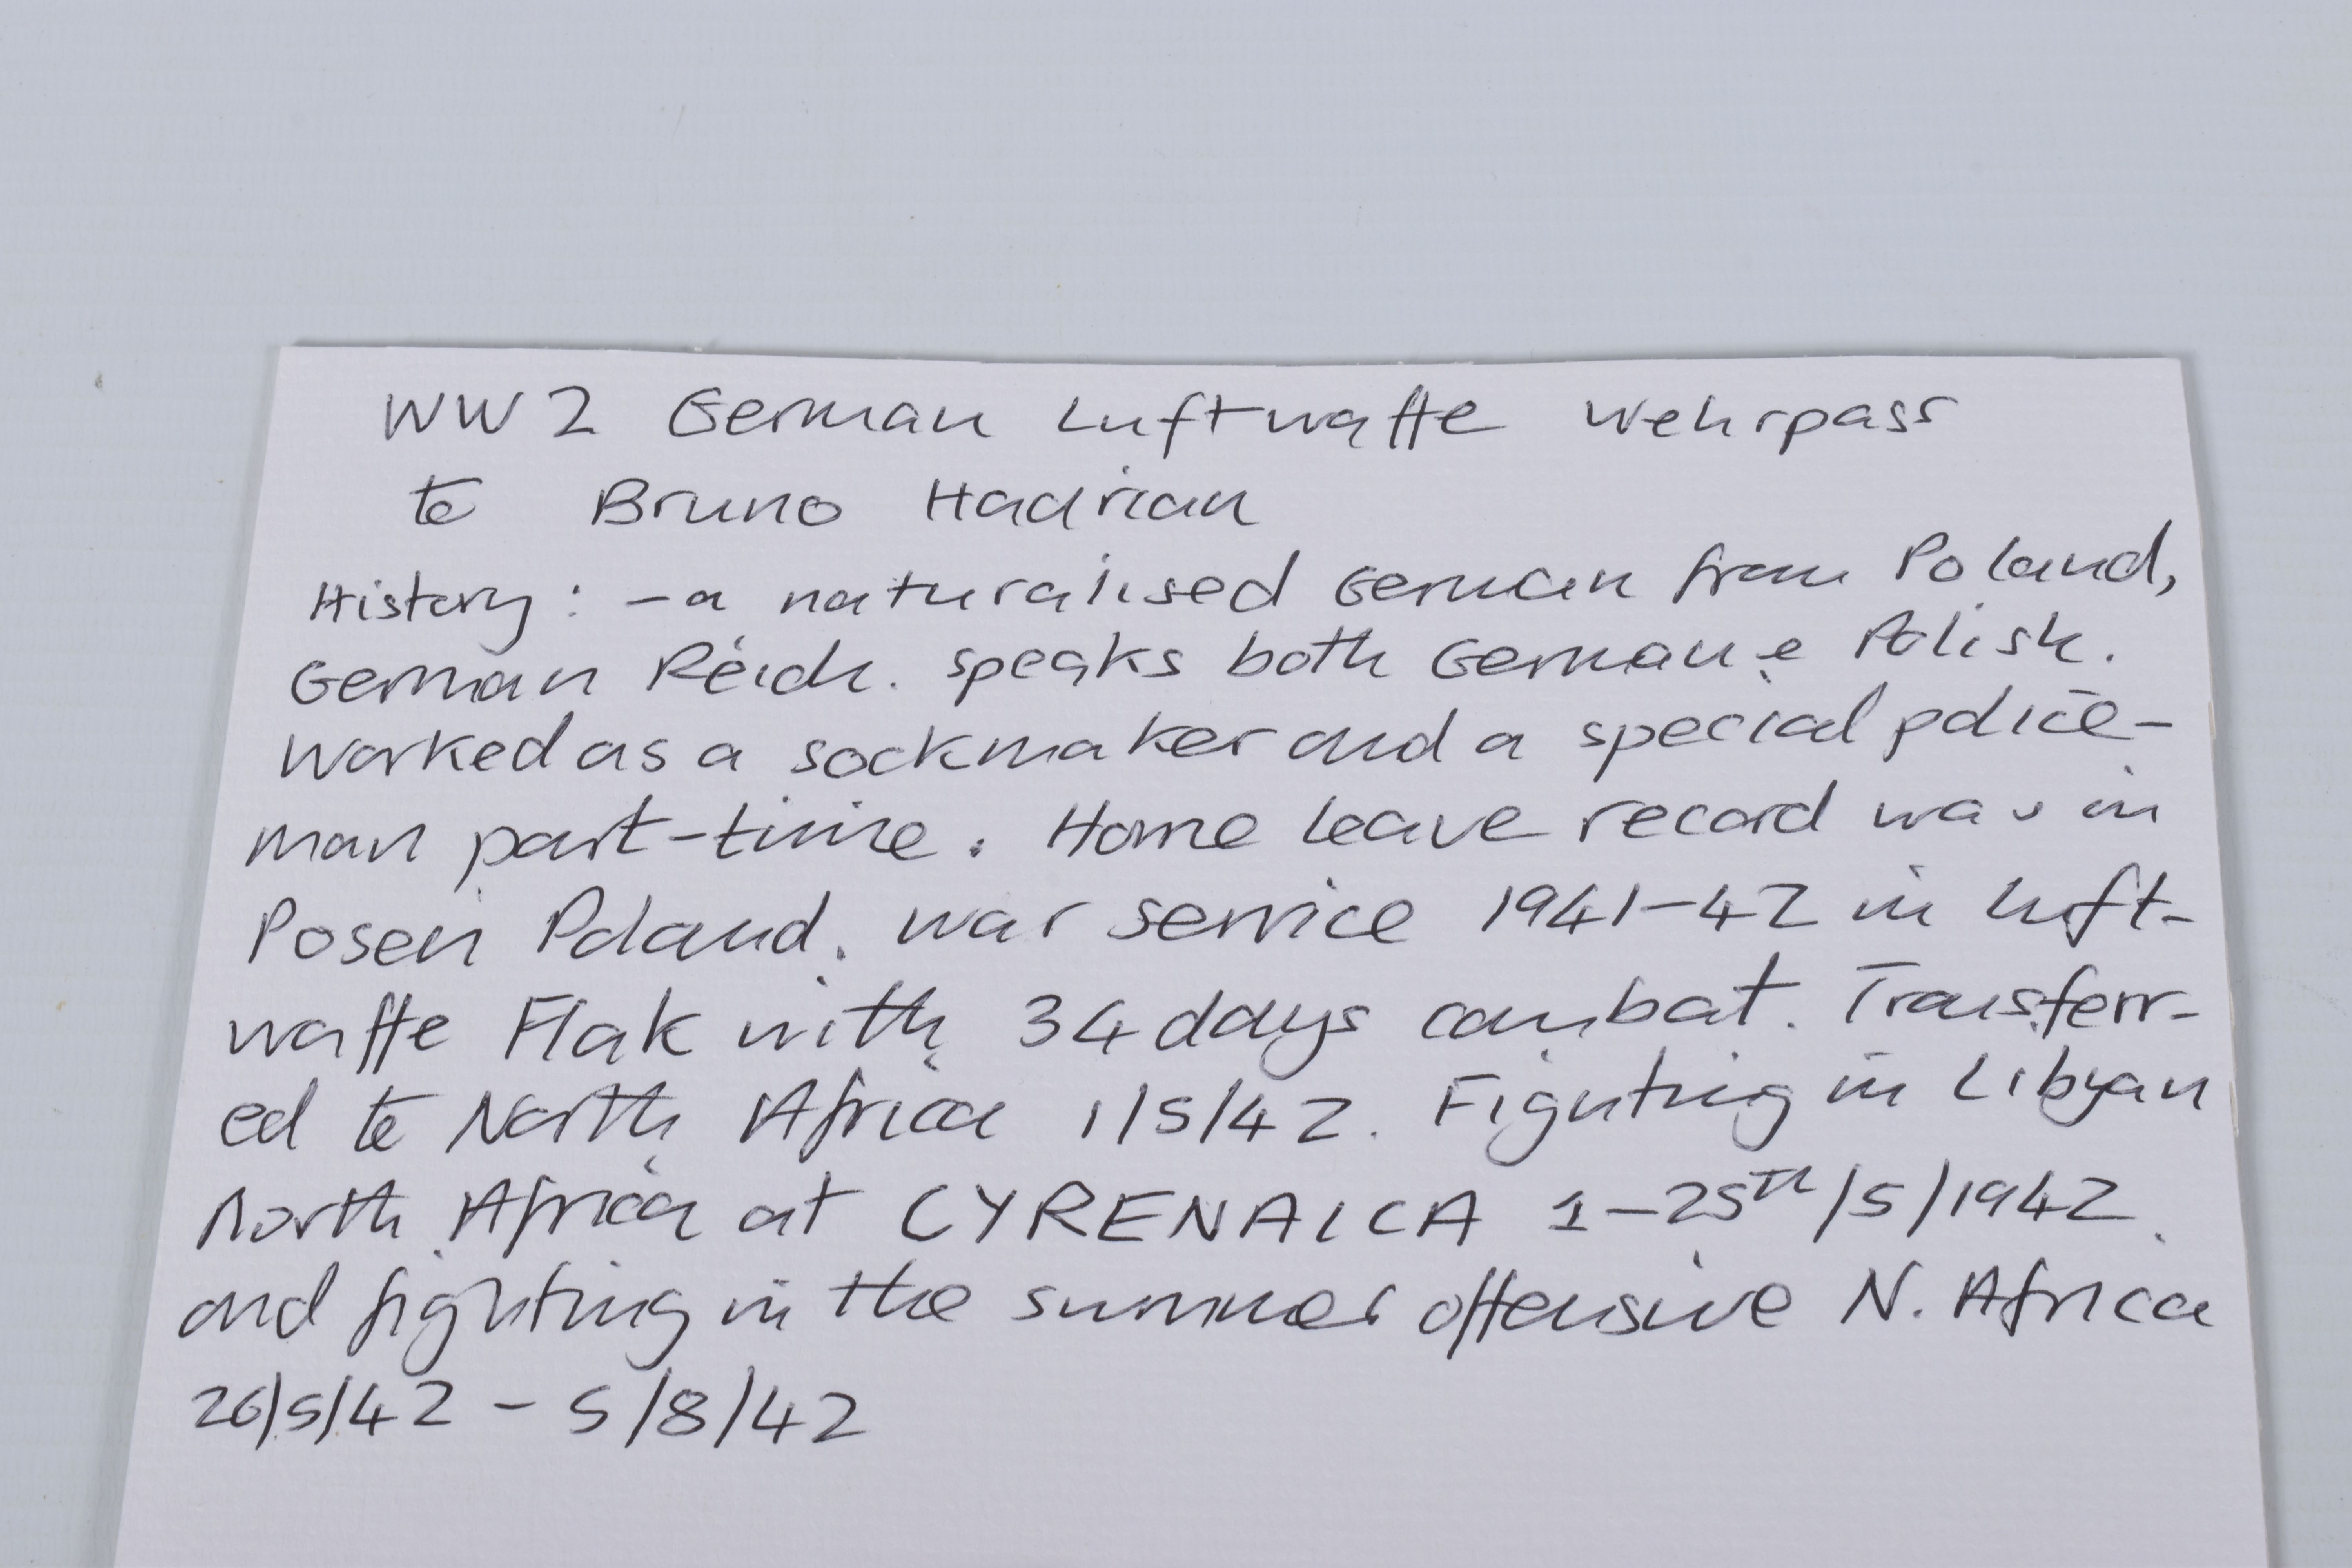 WW2 German Luftwaffe Wehrpass
to Bruno Hadrian
History: - a naturalised German from Poland,
German Reich. speaks both German & Polish.
Worked as a sockmaker and a special police-
man part-time. Home leave record was in
Posen Poland. war service 1941-42 in Luft-
waffe Flak with 34 days combat. Transferr-
ed to North Africa 1/5/42. Fighting in Libyan
North Africa at CYRENAICA 1-25TH/5/1942.
and fighting in the summer offensive N. Africa
26/5/42 - 5/8/42